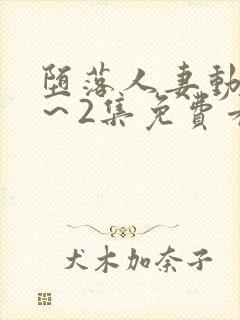 堕落人妻動
～2集免費
犬木加奈子